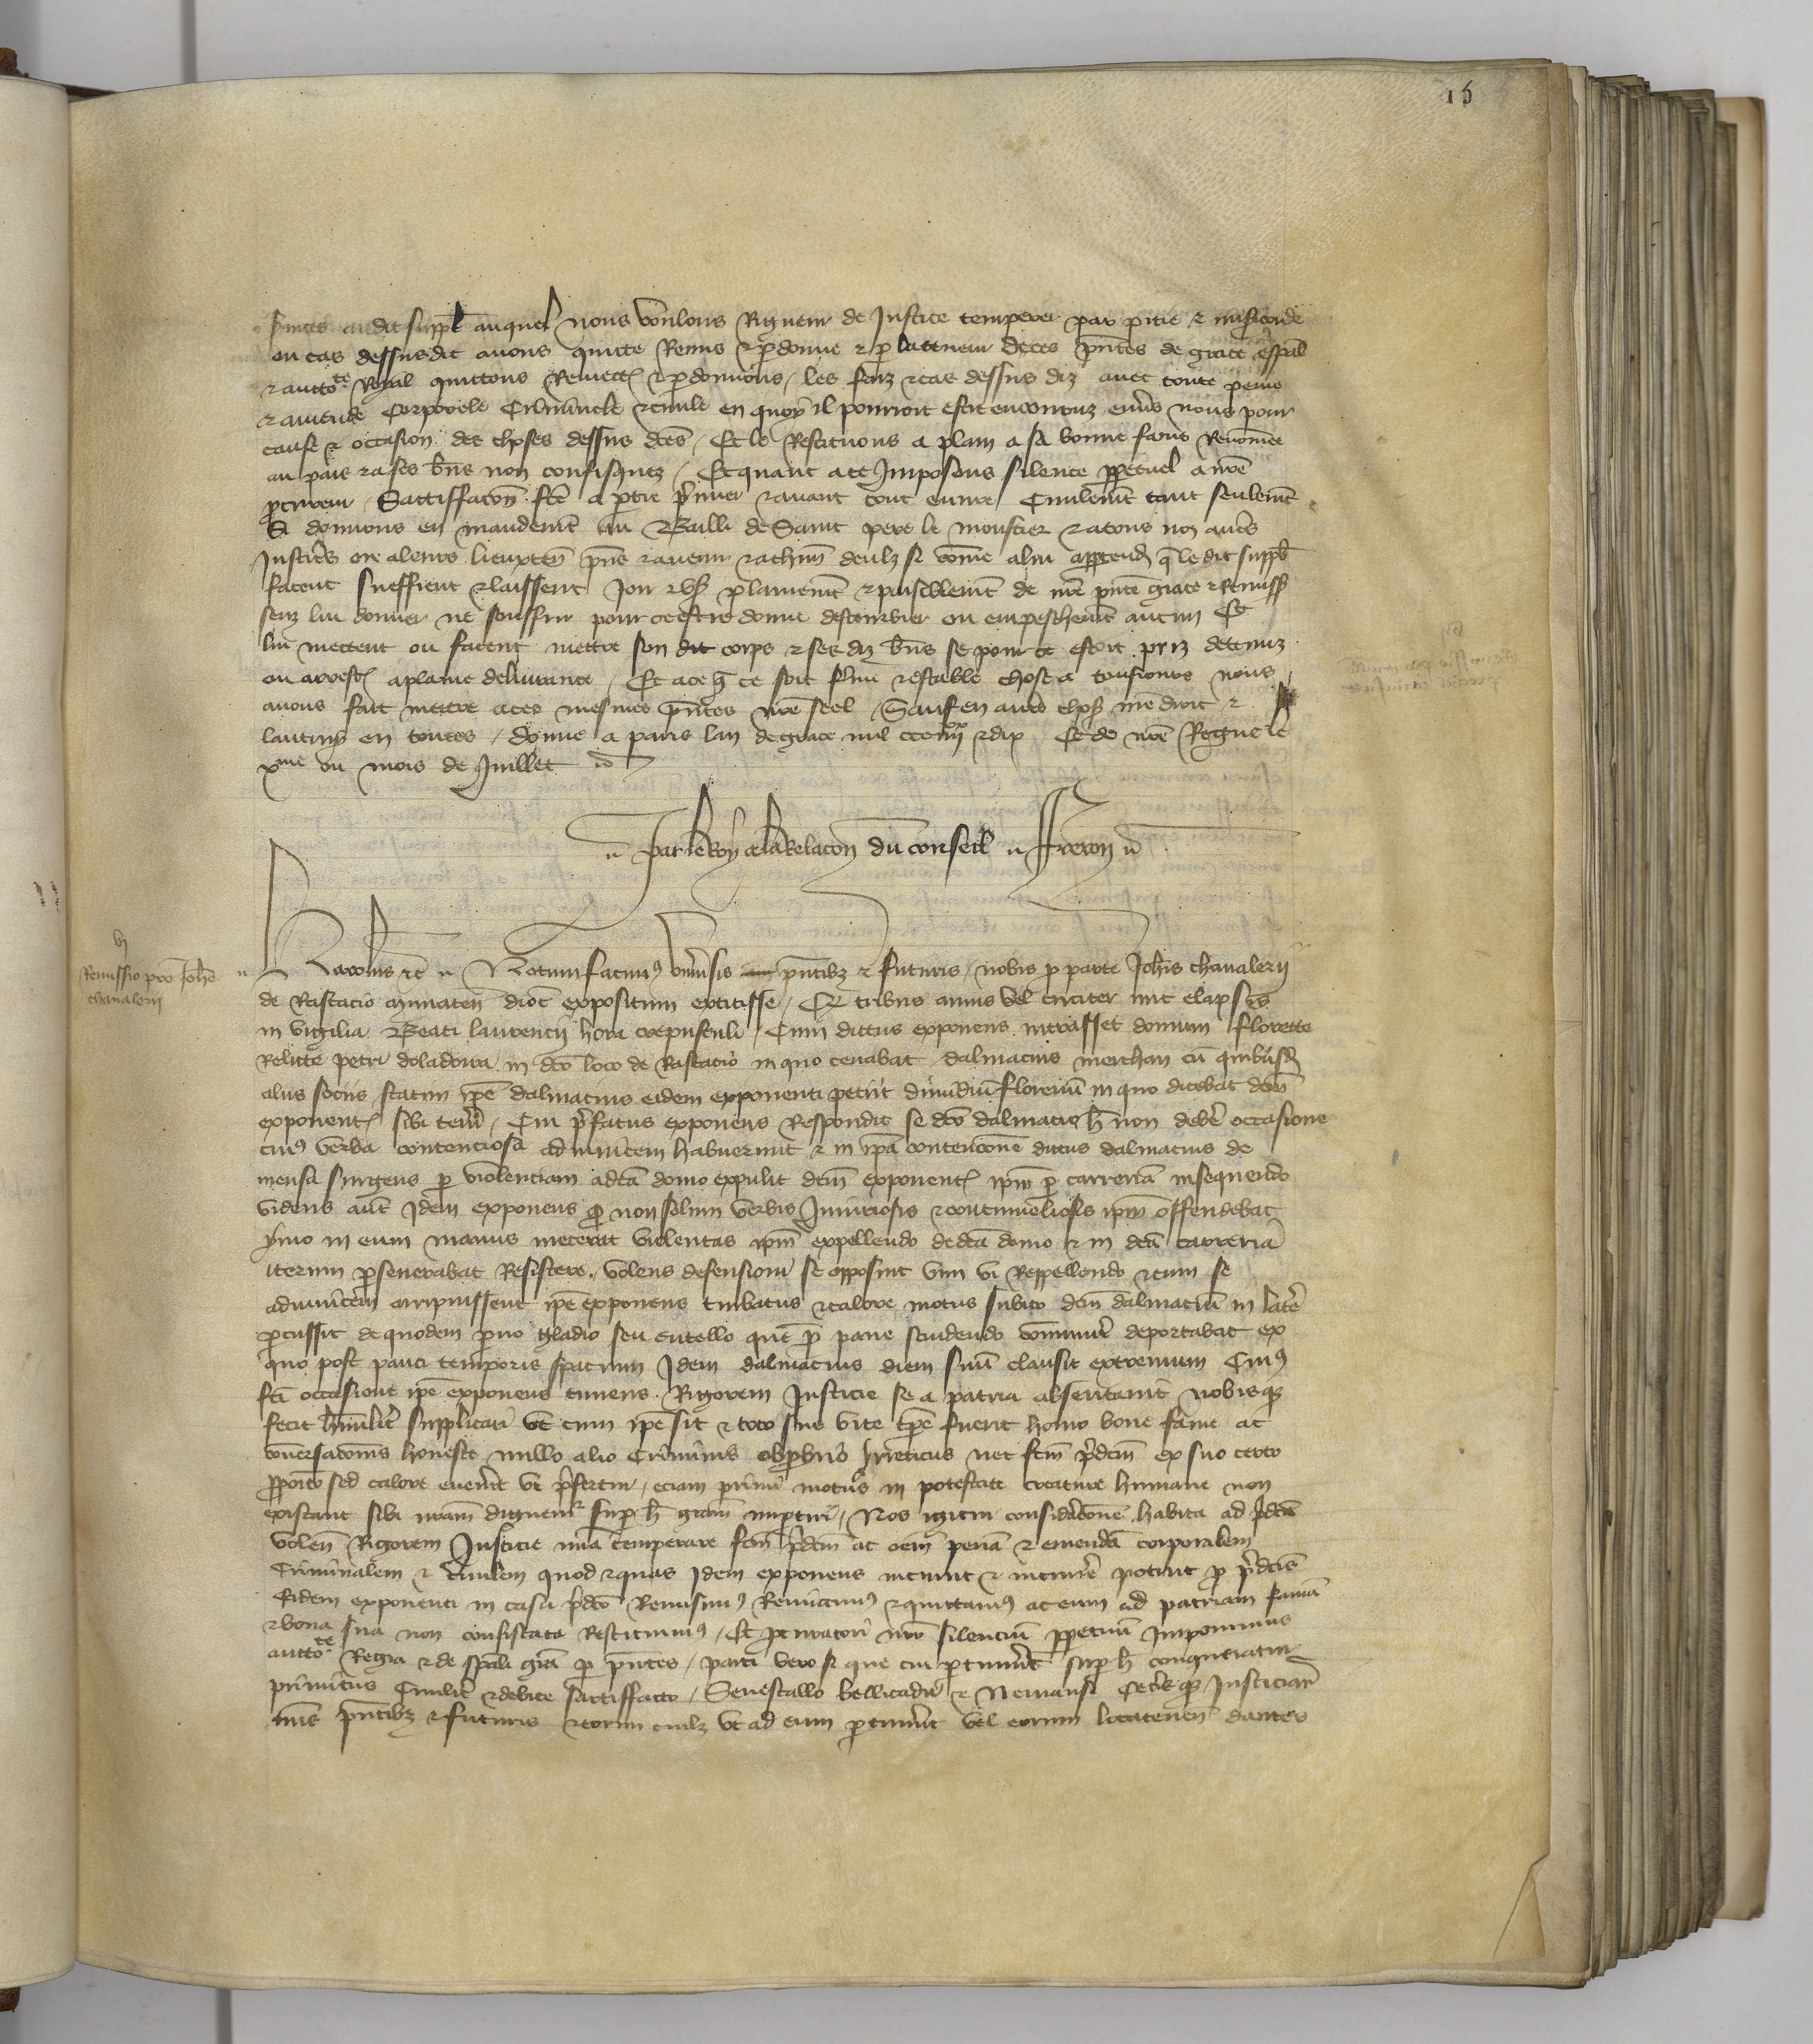 16
audit suppl auquel nous voulons Rigueur de Justice temperer par pitie & misericorde
ou cas dessusdit auons quitte Remis & pdonne & p la teneur de ces pntes de grace espal
& auctote Royal quittons Remectos & pdonnons / les faiz & cas dessus diz auec toute peine
& amende Corporele Criminele & ciuile en quoy il pourroit estre encouruz enuers nous pour
cause & occasion des choses dessus dces / Et le Restituons a plain a sa bonne fame Renomee
au pais & a ses bns non confisquez / Et quant a ce Imposons silence ppetuel a nre
pcureur / Sattisfacon fce a ptie Ciuilemt tant seulemt
Si donnons en mandemt au Bailli de Saint pere le moustier & a tous noz aues
Justics ou a leurs lieuxten pns & auenir & a chun deulz si come a lui apptendr q le dit suppl
facent sueffrent & laissent Joir & vser plainement & paisiblemt de nre pnte grace & Remiss
senz lui donner ne souffrir pour ce estre donne destourbier ou empeschemt aucun Et
lui mettent ou facent mettre son dit corps & ses diz bns se pour ce estoit priz detenuz
ou arrestes a plaine deliurance / Et a ce q ce soit ferme & estable chose a tousiours nous
auons fait mettre a ces mesmes pntes nre seel / Sauf en aues choses nre droit &
lautruy en toutes / Donne a paris lan de grace mil ccc iiiixx & dix Et de nre Regne le
xme ou mois de Juillet
Par le Roy a la Relacon du conseil Freron
vj
Remissio pro Johe
chaualerii
Karolus &c Notum facimus vniuersis pntibz & futuris / nobis p parte Johis chaualerii
de Rastacio mimaten dioc expositum extitisse / Qd tribus annis vel circiter nuc elapsis
in vigilia Beati laurencij hora crepusculi / Cum dictus exponens intrasset domum florette
Relicte petri doladoura in dco loco de Rastacio in quo cenabat dalmacius merchan cu quibusd
aliis sociis statim ipe dalmacius eidem exponenti petiit dimidiu florenu in quo dicebat dcm
exponente sibi teneri / Cui prefatus exponens Respondit se dco dalmacio h non debere occasione
cuius verba contenciosa adinuicem habuerunt & in ipa contencone dictus dalmacius de
mensa surgens p violenciam a dca domo expulit dcm exponente ipm p carreriam insequendo
videns aut Idem exponens q non solum verbis Iniuriosis & contumeliosis ipm offendebat
ymo in eum manus iniecerat violentas ipm expellendo de dca domo & in dca carreria
iterum pseuerabat Resistere volens defensioni se opposuit vim vi Reppellendo & cum se
adinuicem arripuissent ipe exponens turbatus & calore motus subito dcm dalmaciu in latere
pcussit de quodem paruo gladio seu cutello que p pane scindendo comuniter deportabat ex
quo post pauci temporis spacium Idem dalmacius diem suu clausit extremum Cuius
fci occasione ipe exponens timens Rigorem Justicie se a patria absentauit nobisqz
fecit humiliter supplicari vt cum ipe sit & toto sue vite tpe fuerit homo bone fame ac
conuersaconis honeste nullo alio Criminis obprobrio irretitus nec fcm predcm ex suo certo
pposito sed calore euenerit vt prefertur / eciam primi motus in potestate creature humane non
existant sibi nram dignemur sup h gram impertiri / Nos igitur consideracone habita ad predca
volen Rigorem Justicie mia temperare fcm predcm ac oem pena & emenda corporalem
Criminalem & Ciuilem quod & quas Idem exponens incurrit & incurrere potuit p predcis
Eidem exponenti in casu predco Remisimus Remittimus & quittamus ac eum ad patriam famam
& bona sua non confiscata Restituimus / Et pcuratori nro silenciu ppetuu Imponimus
auctote Regia & de spali gra p pntes / parti vero si que cui ptinuerit sup h conqueratur
primitus Ciuiliter & debite sattisfacto / Senescallo bellicadri & Nemausi Ceterisqz Justiciar
nris pntibz & futuris & eorum cuilz vt ad eum ptinuerit vel eorum locatenen dantes